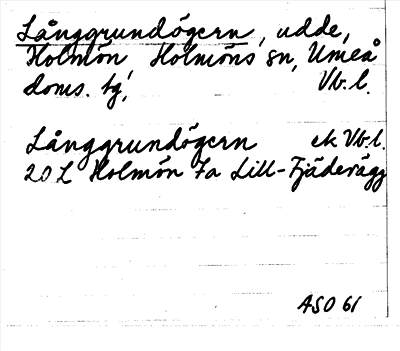 Långgrundögern, udde,
Holmön Holmöns sn, Umeå
doms. tg, Vb.l.
Långgrundögern ek Vb.l.
20 L Holmön 7a Lill-Fjäderägg
ASO 61